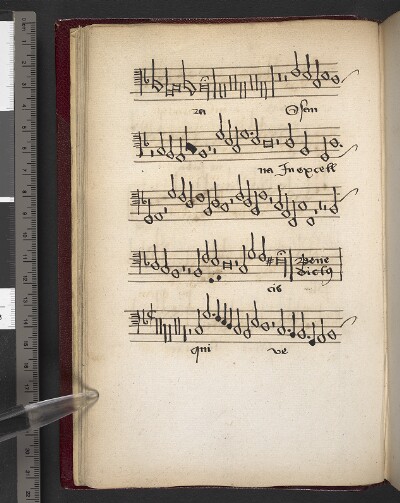 za Osan
na In excels
cis
Bene
dictus
qui ve